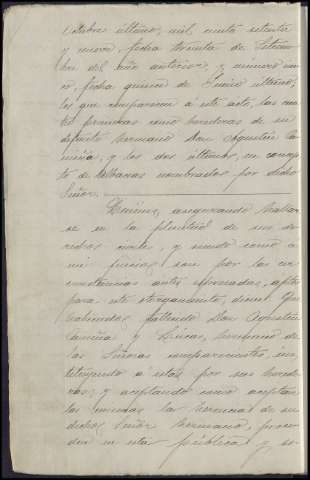 Octubre último, mil ciento setenta
y nueve, fecha treinta de Setiem-
bre del año anterior, y número
fecha quince de Junio último,
los que comparecen a este acto, las cua-
tro primeras como herederas de su
difunto hermano Don Agustín Ca-
miña, y los dos últimos, en concep-
to de albaceas nombrados por dicho
Señor.
Quienes, asegurando hallar-
se en la plenitud de sus de-
rechos civiles, y siendo como a
mi juicio, son por las cir-
cunstancias antes expresadas, aptos
para este otorgamiento, dicen: Que
habiendo fallecido Don Agustín
Camiña y hermano de
las Señoras comparecientes, ins-
tituyendo a estas por sus herede-
ras; y aceptando como aceptan
las mismas la herencia de su
dicho Señor hermano, proce-
den en esta pública y so-